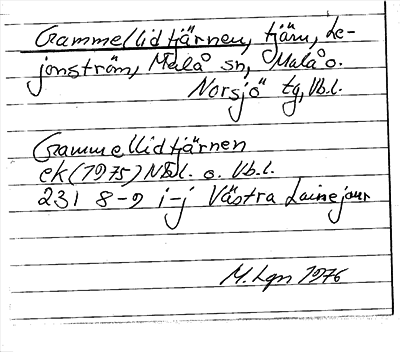 Gammellidtjärnen, tjärn, Le-
jonström, Malå sn, Malå o.
Norsjö tg, Vb.l.
Gammellidtjärnen
ek (1975) Nb.l. o. Vb.l.
231 8-9 i-j Västra Lainejaur
M. Lgn 1976